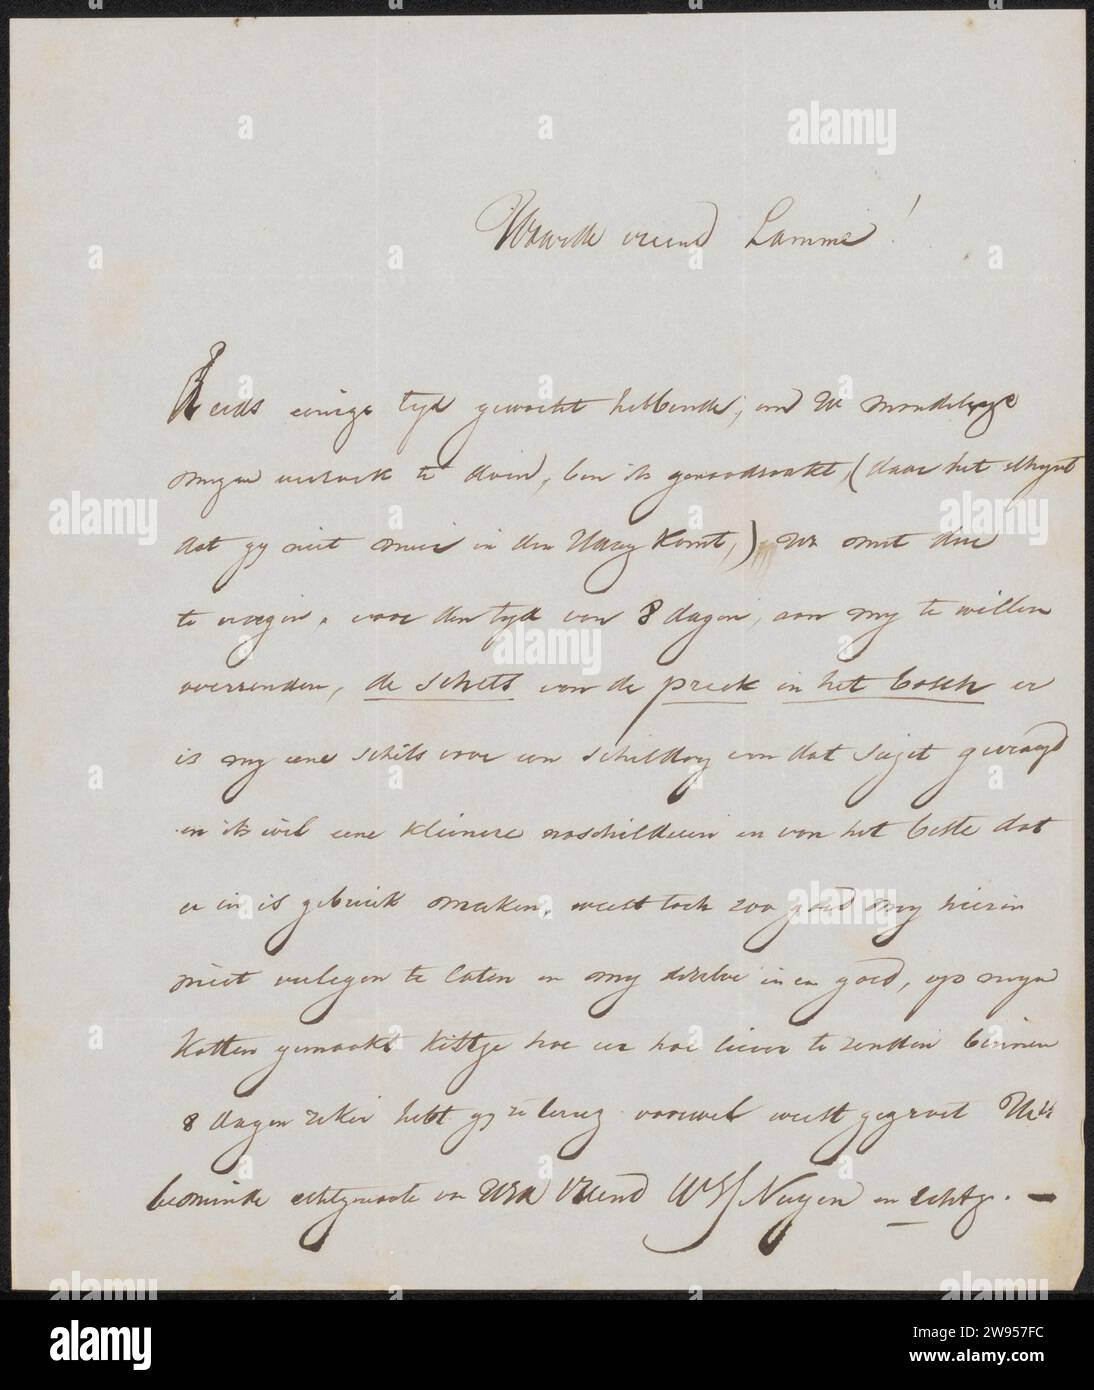 Waarde vriend Lamme!
Reeds eenige tyd gewacht hebbende, om UE mondelinge
myn verzoek te doen, ben ik genoodzaakt, (daar het schynt
dat gy niet meer in den Haag komt,) UE met deze
te vragen, voor den tyd van 8 dagen, aan my te willen
overzenden, de schets van de preek in het bosch er
is my eene schets voor een schildery van dat sujet gevraagd
en ik wil eene kleinere naschilderen en van het beste dat
er in is gebruik maken, weest toch zoo goed my hierin
niet verlegen te laten en my dezelve in een goed, op myn
kosten gemaakt kistje hoe eer hoe liever te zenden binnen
8 dagen zeker hebt gy ze terug vaarwel weest gegroet
beminde echtgenoote van UEd Vriend WJJ Nuyen en echtg. —